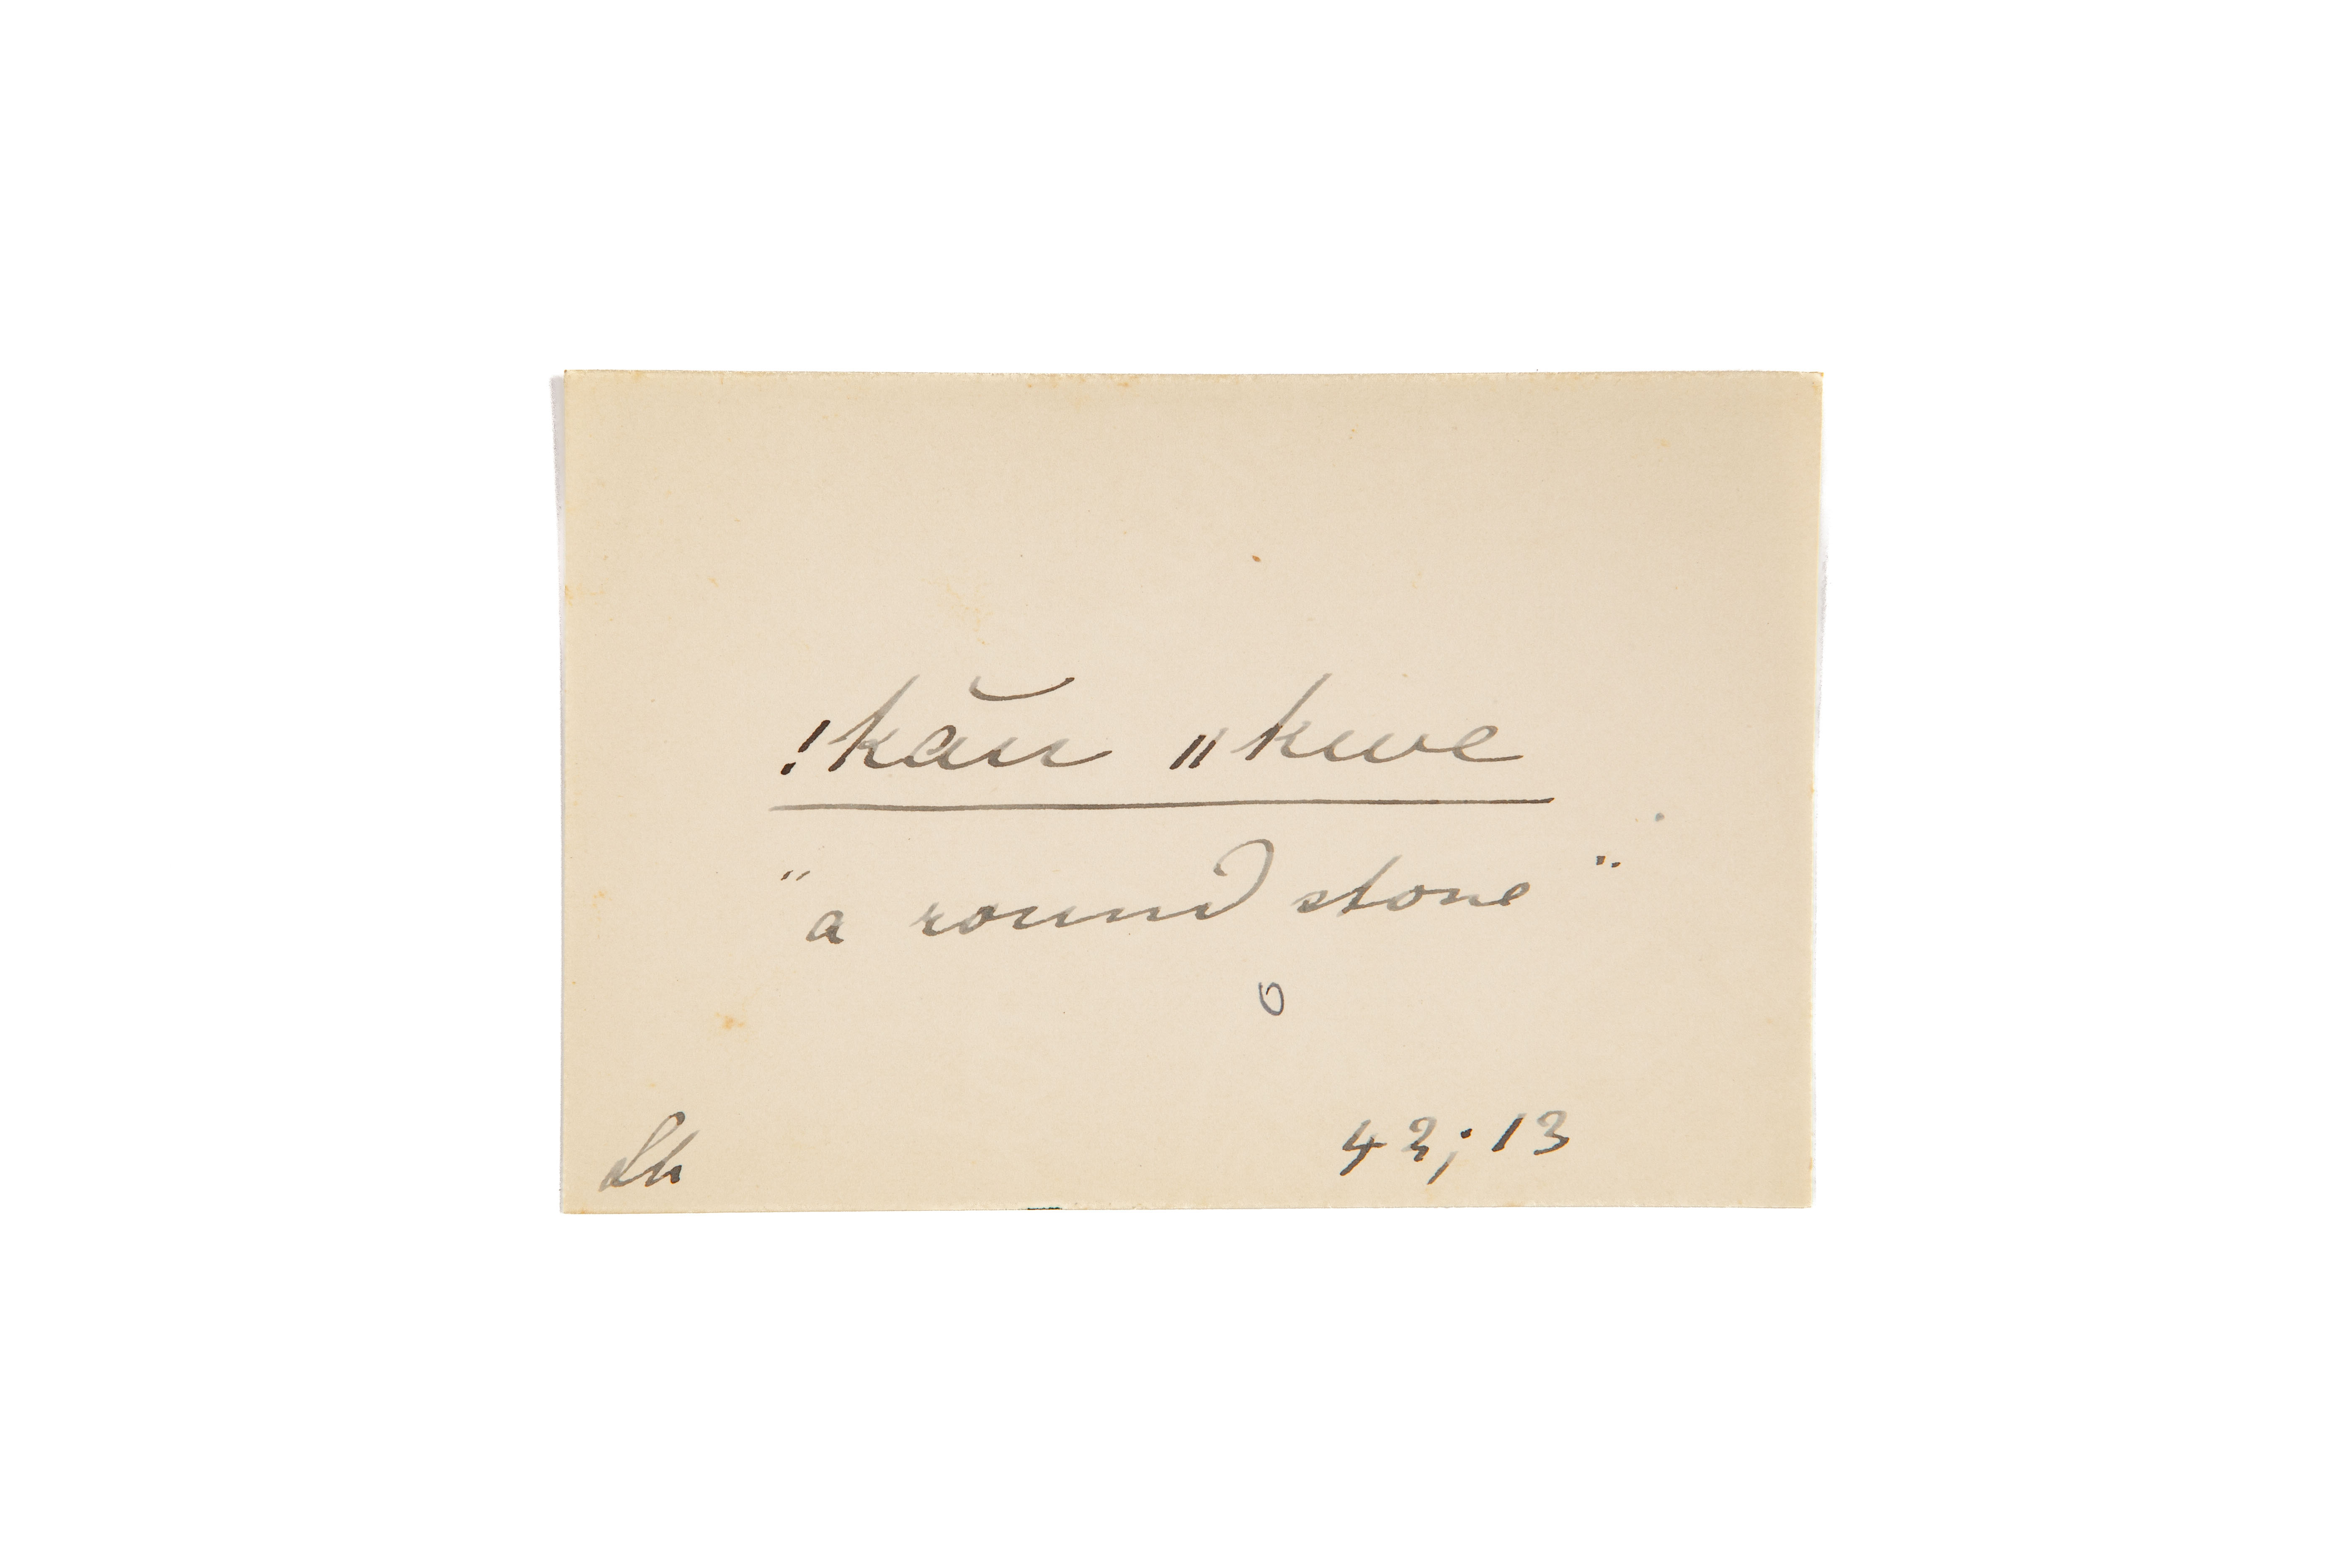 !kău ǁkwe
"a round stone"
o
Lh 42; 13